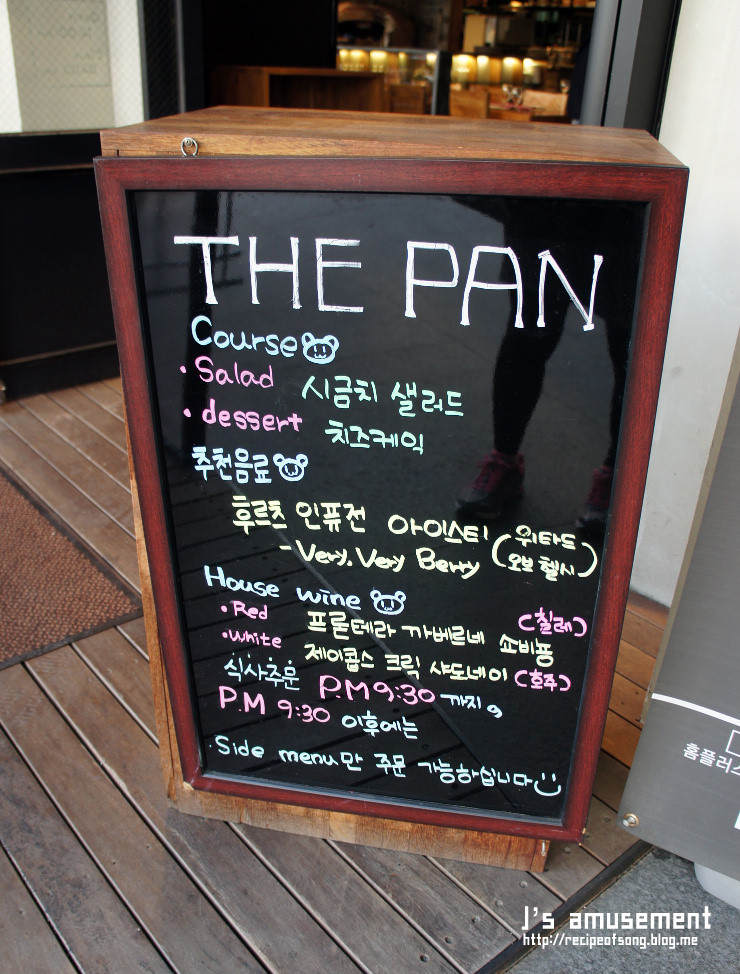 THE PAN
Course
· Salad 시금치 샐러드
· dessert 치즈케익
추천음료
후르츠 인퓨전 아이스티 (위타드 오브 첼시)
- Very. Very Berry
House wine
· Red 프론테라 까베르네 쇼비뇽 (칠레)
· White 제이콥스 크릭 샤도네이 (호주)
식사주문 P.M 9:30 까지,
P.M 9:30 이후에는
Side menu만 주문 가능하십니다
홈플러스
J's amusement
http://recipeofsong.blog.me